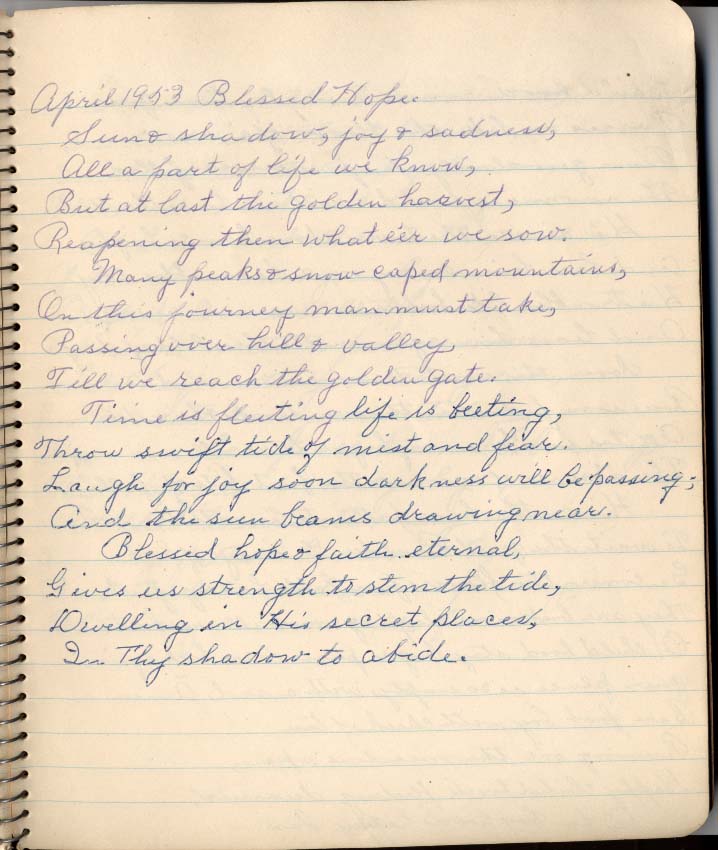 April 1953 Blessed Hope.
Sun & shadow, joy & sadness,
All a part of life we know,
But at last the golden harvest,
Reapening then what e'er we sow.
Many peaks & snow caped mountains,
On this journey man must take,
Passing over hill & valley,
Till we reach the golden gate.
Time is fleeting life is beeting,
Throw swift tide of mist and fear.
Laugh for joy soon darkness will be passing,
And the sun beams drawing near.
Blessed hope & faith eternal,
Gives us strength to stem the tide,
Dwelling in His secret places,
In Thy shadow to abide.